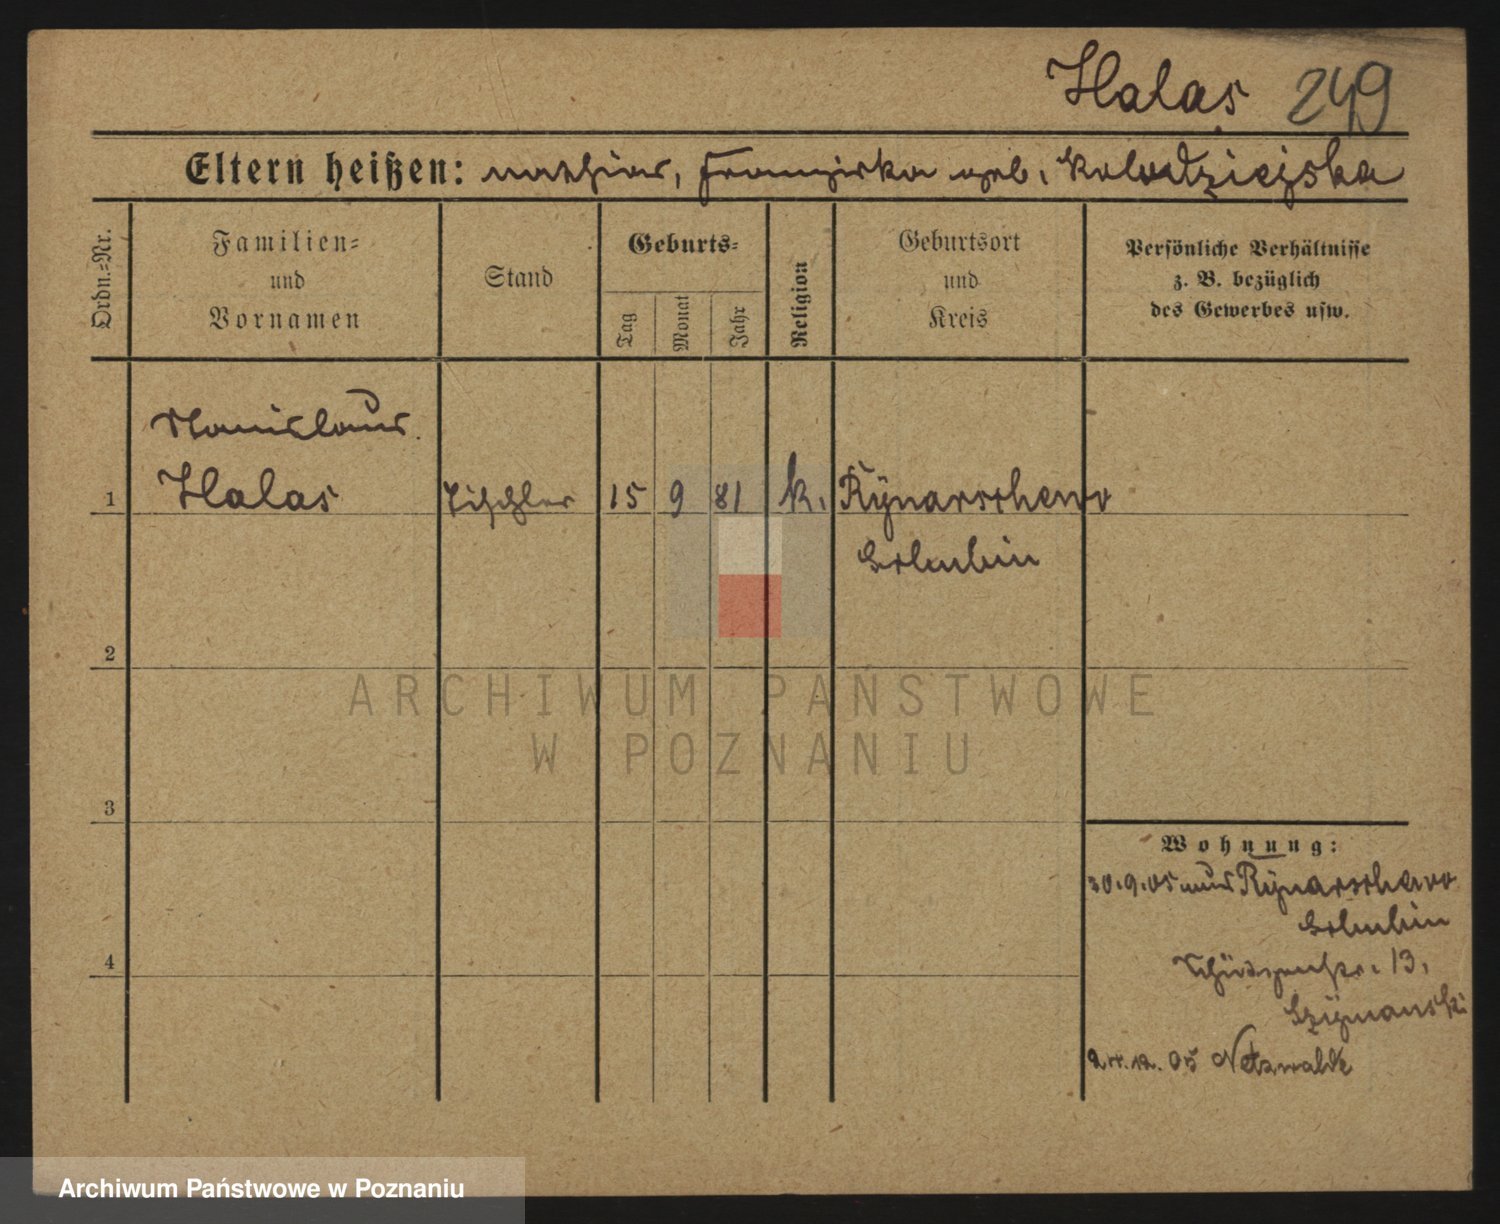 Halas 249
Eltern heißen: Mathias, Franziska geb. Kolodziejska
Ordn.=Nr.
Familien=
und
Vornamen
Stand
Geburts=
Tag
Monat
Jahr
Religion
Geburtsort
und
Kreis
Persönliche Verhältnisse
z. B. bezüglich
des Gewerbes usw.
Stanislaus
1 Halas Tischler 15 9 81 k. Rynarschewo
Schubin
2
3
4
Wohnung:
30.9.05 aus Rynarschewo
Schubin
Schützenstr. 13,
Szymanski
05 Netzwalde
ARCHIWUM PAŃSTWOWE
W POZNANIU
Archiwum Państwowe w Poznaniu